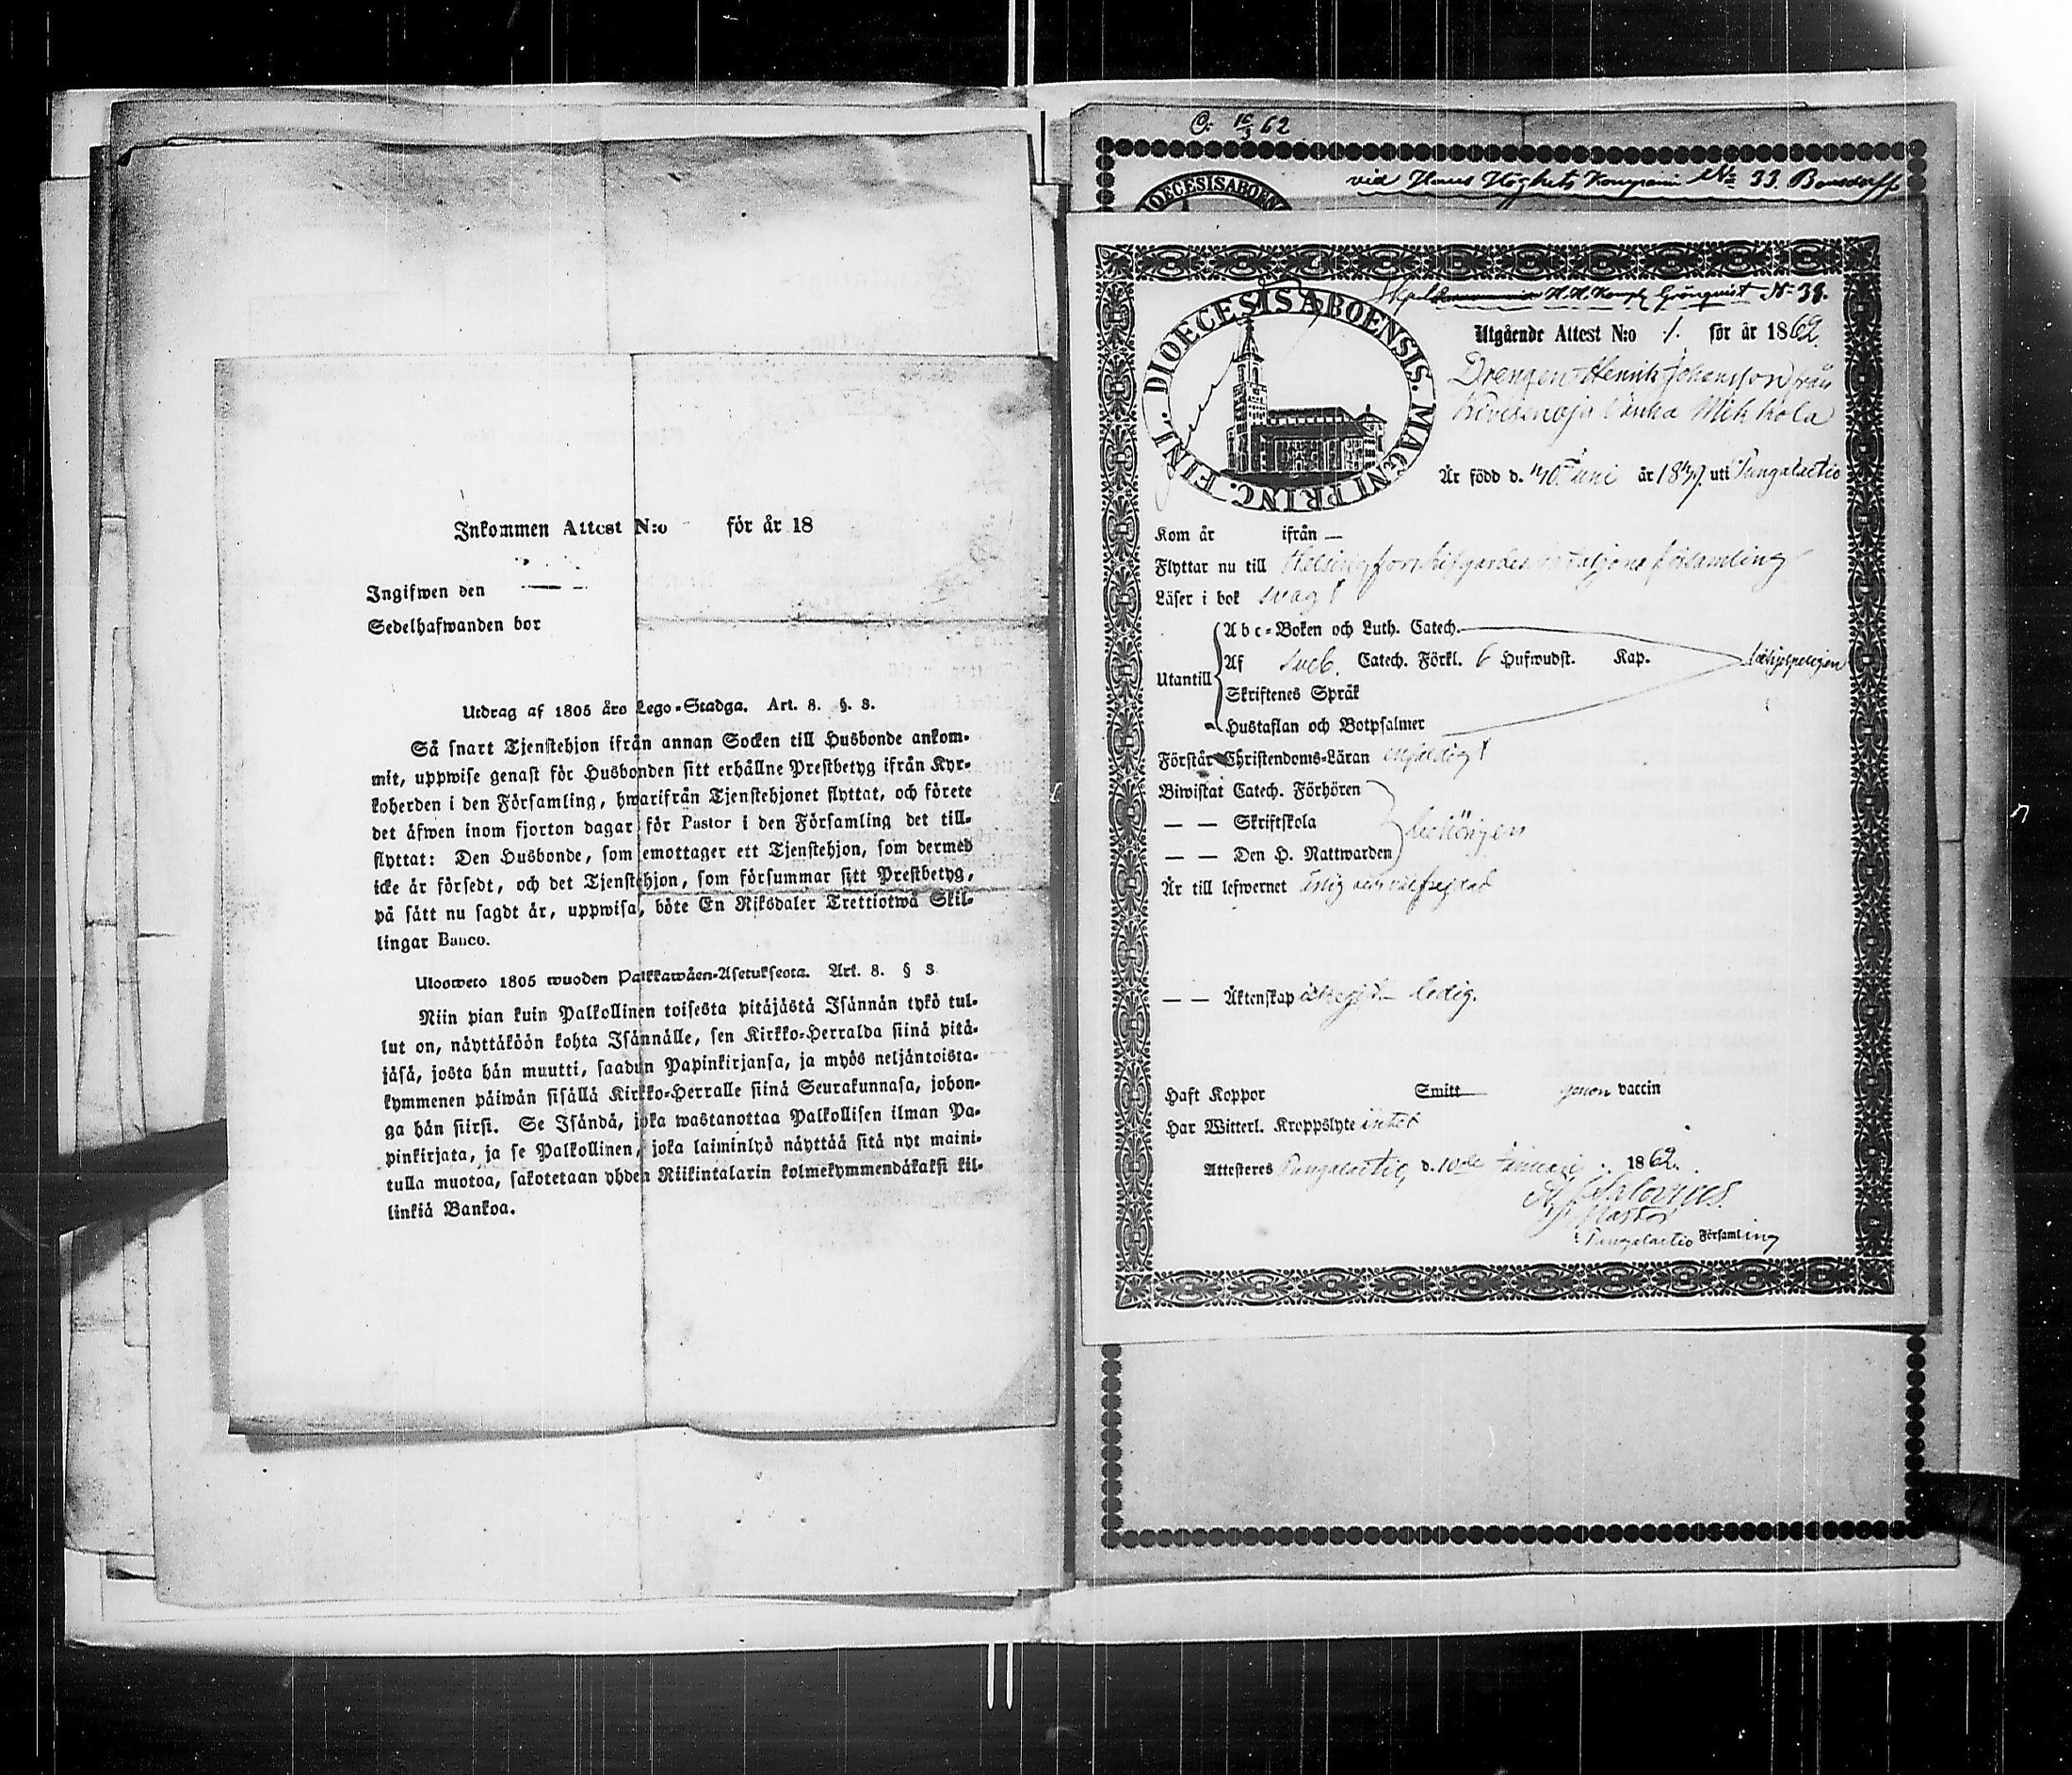 Inkommen Attest N:o för år 18
Ingifwen den
Sedelhafwanden bor
Utdrag af 1805 års Lego-Stadga. Art. 8. §. 3.
Så snart Tjenstehjon ifrån annan Socken till Husbonde ankom-
mit, uppwise genast för Husbonden sitt erhållne Prestbetyg ifrån Kyr-
koherden i den Församling, hwarifrån Tjenstehjonet flyttat, och förete
det äfwen inom fjorton dagar för Pastor i den Församling det till-
flyttat: Den Husbonde, som emottager ett Tjenstehjon, som dermed
icke är försedt, och det Tjenstehjon, som försummar sitt Prestbetyg,
på sätt nu sagdt är, uppwisa, böte En Riksdaler Trettiotwå Skil-
lingar Banco.
Ulosweto 1805 wuoden Palkkawäen-Asetuksesta. Art. 8. § 3
Niin pian kuin Palkollinen toisesta pitäjästä Isännän tykö tul-
lut on, näyttäköön kohta Isännälle, sen Kirkko-Herralda siinä pitä-
jäsä, josta hän muutti, saadun Papinkirjansa, ja myös neljäntoista-
kymmenen päiwän sisällä Kirkko-Herralle siinä Seurakunnasa, johon-
ga hän siirsi. Se Isändä, joka wastanottaa Palkollisen ilman Pa-
pinkirjata, ja se Palkollinen, joka laiminlyö näyttää sitä nyt maini-
tulla muotoa, sakotetaan yhden Riikintalarin kolmekymmendäkaksi kil-
linkiä Bankoa.
C. 10/3 62
vid Hans Höghets Kompani No 33. Bonsdorff
DIOECESISABOEN
H. H. Komp. Grönquist No 38.
DIOECESIS ABOENSIS. MAGNI PRINC. FINL.
Utgående Attest N:o 1. för år 1862.
Drengen Henrik Johansson från
Vanha Mikkola
Är född d. Juni år 18 uti Pungalaitio
Kom år ifrån —
Flyttar nu till Helsingfors församling
Läser i bok svagt
Utantill
Abc-Boken och Luth. Catech.
Af Sveb. Catech. Förkl. 6 Hufwudst. Kap.
Skriftenes Språk
Hustaflan och Botpsalmer
Förstår Christendoms-Läran enfaldigt
Biwistat Catech. Förhören
— — Skriftskola
— — Den H. Nattwarden
behörigen
Är till lefwernet ärlig och välfrejdad
— — Äktenskap ledig.
Haft Koppor Smitt genom vaccin
Har Witterl. Kroppslyte intet
Attesteras Pungalaitio, d. 10de Januari 1862.
Salovius.
Pastor
i Pungalaitio Församling